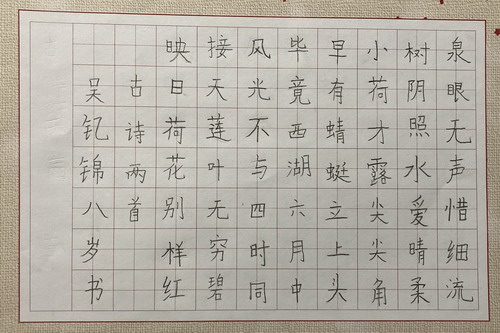 泉眼无声惜细流
树阴照水爱晴柔
小荷才露尖尖角
早有蜻蜓立上头
毕竟西湖六月中
风光不与四时同
接天莲叶无穷碧
映日荷花别样红
古诗两首
吴钇锦八岁书